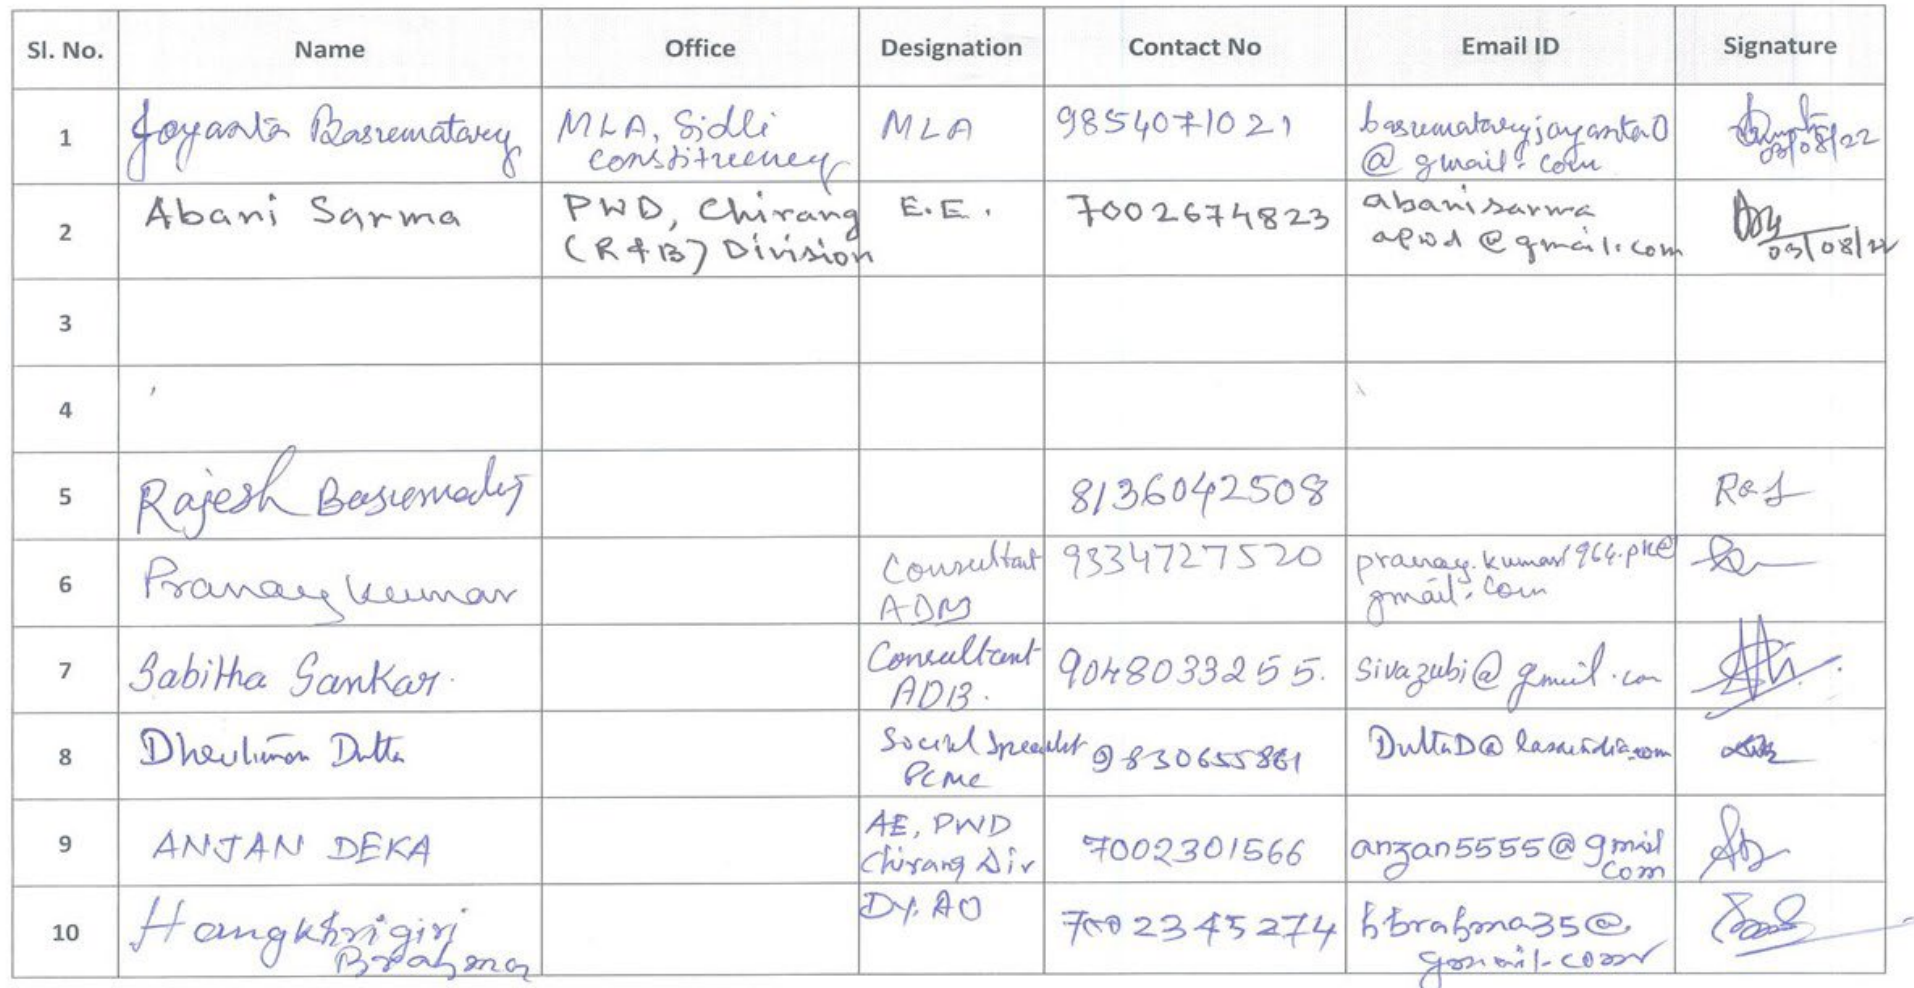 Sl. No. Name Office Designation Contact No Email ID Signature
1 Joyanta Basumatary MLA, Sidli constituency MLA 9854071021 basumataryjoyanta0
@gmail.com 03/08/22
2 Abani Sarma PWD, Chirang (R&B) Division E.E. 7002674823 abanisarma
apwd@gmail.com 03/08/22
3
4
5 Rajesh Basumatary 8136042508 Raj
6 Pranay Kumar Consultant ADB 9334727520 pranay.kumar1964.pk@
gmail.com
7 Sabitha Sankar. Consultant ADB. 9048033255. sivazubi@gmail.com
8 Dutta Social Specialist PCMC 9830655861 DuttaD@lasaindia.com
9 ANJAN DEKA AE, PWD Chirang Div 7002301566 anzan5555@gmail
com
10 Hangkhrigiri Brahma Dy. AO 7002345274 hbrahma35@
gmail.com